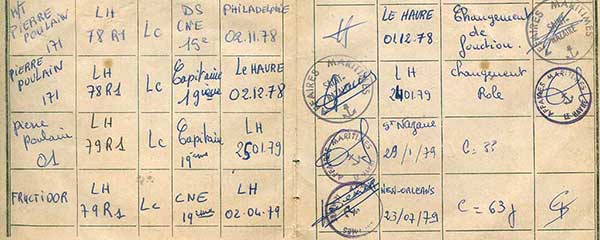 N/T PIERRE POULAIN 171
LH 78 R1
Lc
DS CNE 15e
PHILADELPHIE 02.11.78
LE HAVRE 01.12.78
Changement de fonction.
AFFAIRES MARITIMES SAINT-NAZAIRE
PIERRE POULAIN 171
LH 78R1
Lc
Capitaine 19ième
Le HAVRE 02.12.78
AFFAIRES MARITIMES
LH 01.79
Changement Role
AFFAIRES MARITIMES
Pierre Poulain 01
LH 79R1
Lc
Capitaine 19ème
LH 01.79
St Nazaire 29/1/79
FRUCTIDOR
LH 79 R1
Lc
CNE 19ème
LH 02.04.79
NEW-ORLEANS 23/07/79
C = 63 j